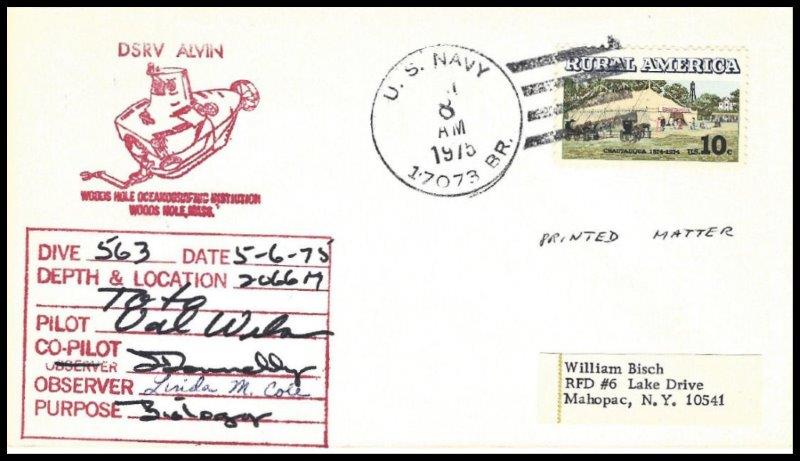 DSRV ALVIN
WOODS HOLE OCEANOGRAPHIC INSTITUTION
WOODS HOLE, MASS.
U. S. NAVY
8
AM
1975
17073 BR.
RURAL AMERICA
CHAUTAUQUA 1874-1974 U.S. 10c
PRINTED MATTER
DIVE 563 DATE 5-6-75
DEPTH & LOCATION 2066M
Toto
PILOT Val Wilson
CO-PILOT JDonnelly
OBSERVER
OBSERVER Linda M. Cole
PURPOSE Biology
William Bisch
RFD #6 Lake Drive
Mahopac, N. Y. 10541